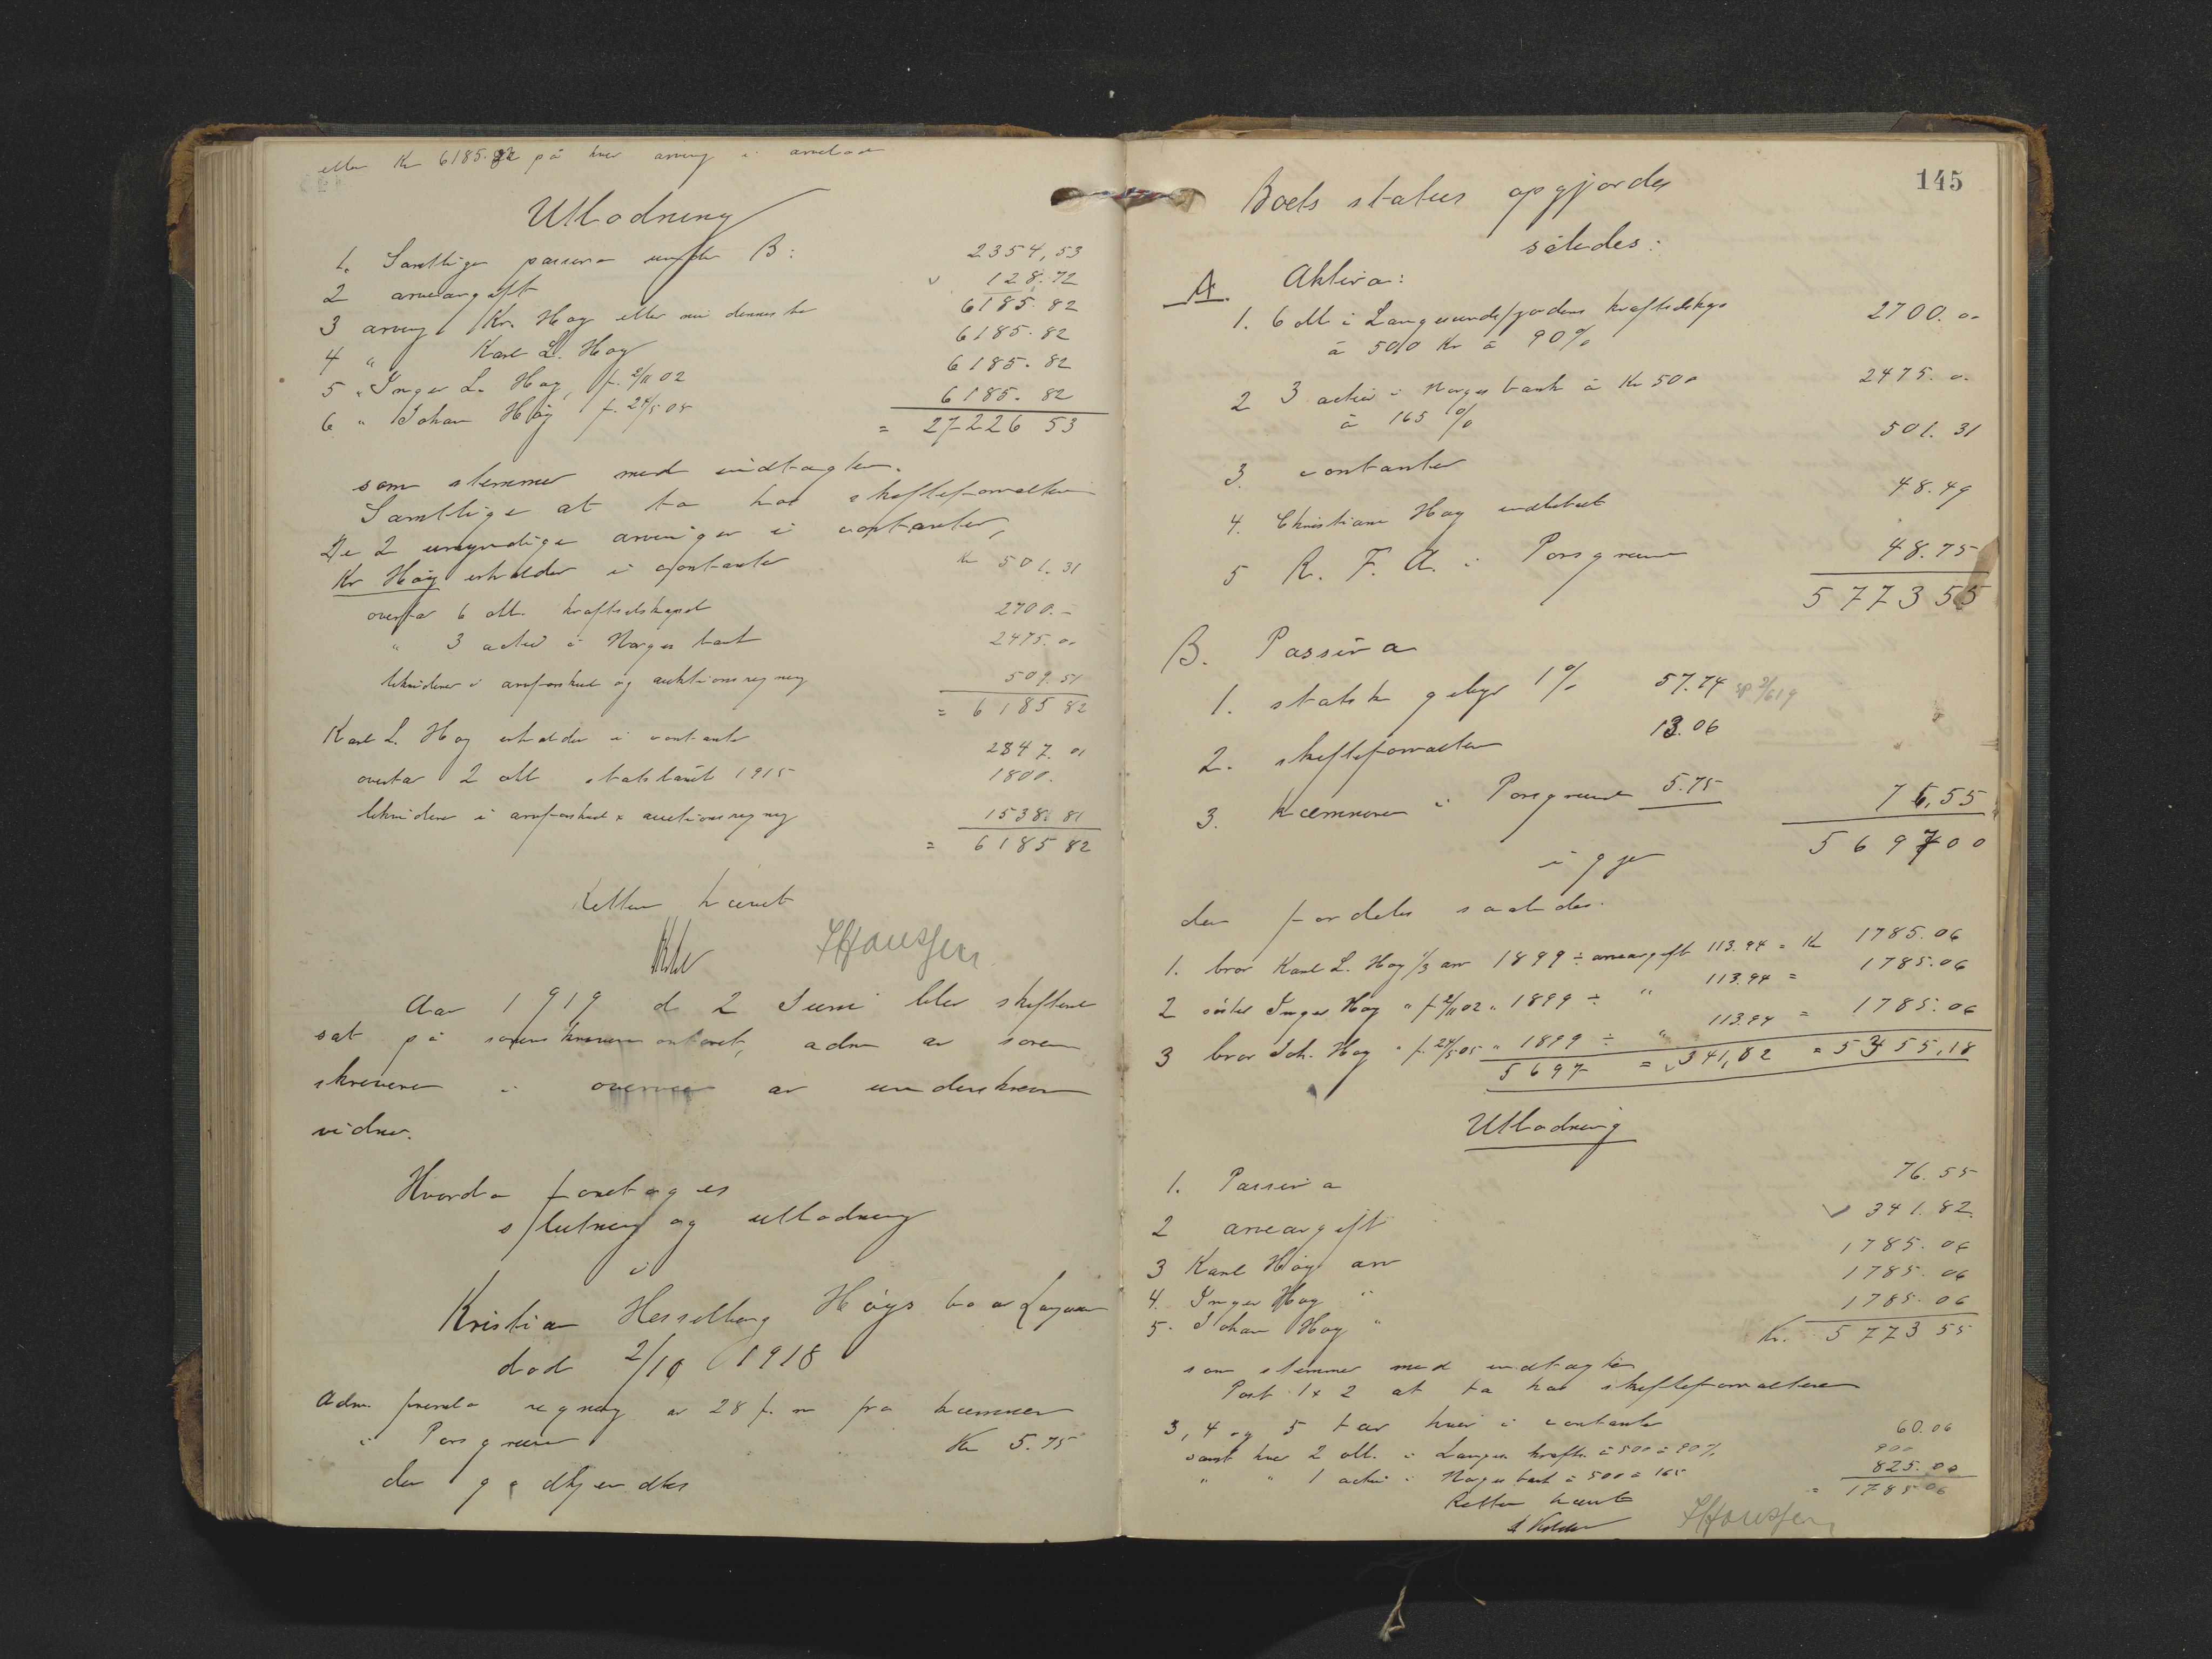 eller Kr 6185.82 på hver arving i arvelod
Utlodning
1. Samtlige passiva under B: 2354,53
2 arveavgift 128.72
3 arving Kr. Høy eller nu dennes bo 6185.82
4 " Karl L. Høy 6185.82
5 " Inger L. Høy, f. 2/11 02 6185.82
6 " Johan Høy f. 24/5 05 6185.82
= 27226 53
som stemmer med indtægten.
Samtlige at ta hos skifteforvalteren
De 2 umyndige arvinger i contanter,
Kr Høy erholder i contanter Kr 501.31
overtar 6 obl. kraftselskapet 2700.-
" 3 actier i Norges bank 2475.00
likviderer i arveforskud og auktionsregning 509.51
= 6185 82
Karl L. Høy erholder i contanter 2847.01
overtar 2 obl statslånet 1915 1800.
likviderer i arveforskud & auctionsregning 1538.81
= 6185 82
Retten hævet
JHanssen
Aar 1919 d. 2 Juni blev skifteret
sat på sorenskriverkontoret, adm av soren
skriveren i overvær av underskrevne
vidner.
Hvorda foretoges
slutning og utlodning
i
Kristian Hesselberg Høys bo av Langesund
død 2/10 1918
Adm. fremla regning av 28 f. m fra kæmneren
i Porsgrund Kr 5.75
den godkjendtes
145
Boets status opgjordes
således:
A. Aktiva:
1. 6 obl. i Langesundsfjordens kraftselskap
à 500 Kr à 90% 2700.00
2 3 actier i Norges bank à Kr 500
à 165 % 2475.00
3. contanter 501.31
4. Christiane Høy indbetalt 48.49
5 R. F. A. i Porsgrund 48.75
5773 55
B. Passiva
1. statsk gebyr 1% 57.74
2. skifteforvalteren 13.06
3. Kæmneren i Porsgrund 5.75 76,55
igjen 5697 00
der fordeles saaledes.
1. bror Karl L. Høy 1/3 arv 1899 ÷ arveavgift 113.94 = Kr 1785.06
2 søster Inger Høy " f 2/11 02 " 1899 ÷ " 113.94 = 1785.06
3 bror Joh. Høy " f. 24/5 05 " 1899 ÷ " 113.94 = 1785.06
5697 = 341,82 = 5355,18
Utlodning
1. Passiva 76.55
2 arveavgift 341.82
3 Karl Høy arv 1785.06
4. Inger Høy " 1785.06
5. Johan Høy " 1785.06
Kr. 5773 55
som stemmer med indtægten
Post 1 & 2 at ta hos skifteforvalteren
3, 4 og 5 tar hver i contanter 60.06
samt hver 2 obl. i Langes. krafts. à 500 à 90% 900
" " 1 actie i Norges bank à 500 à 165 825.00
= 1785 06
Retten hævet
JHanssen